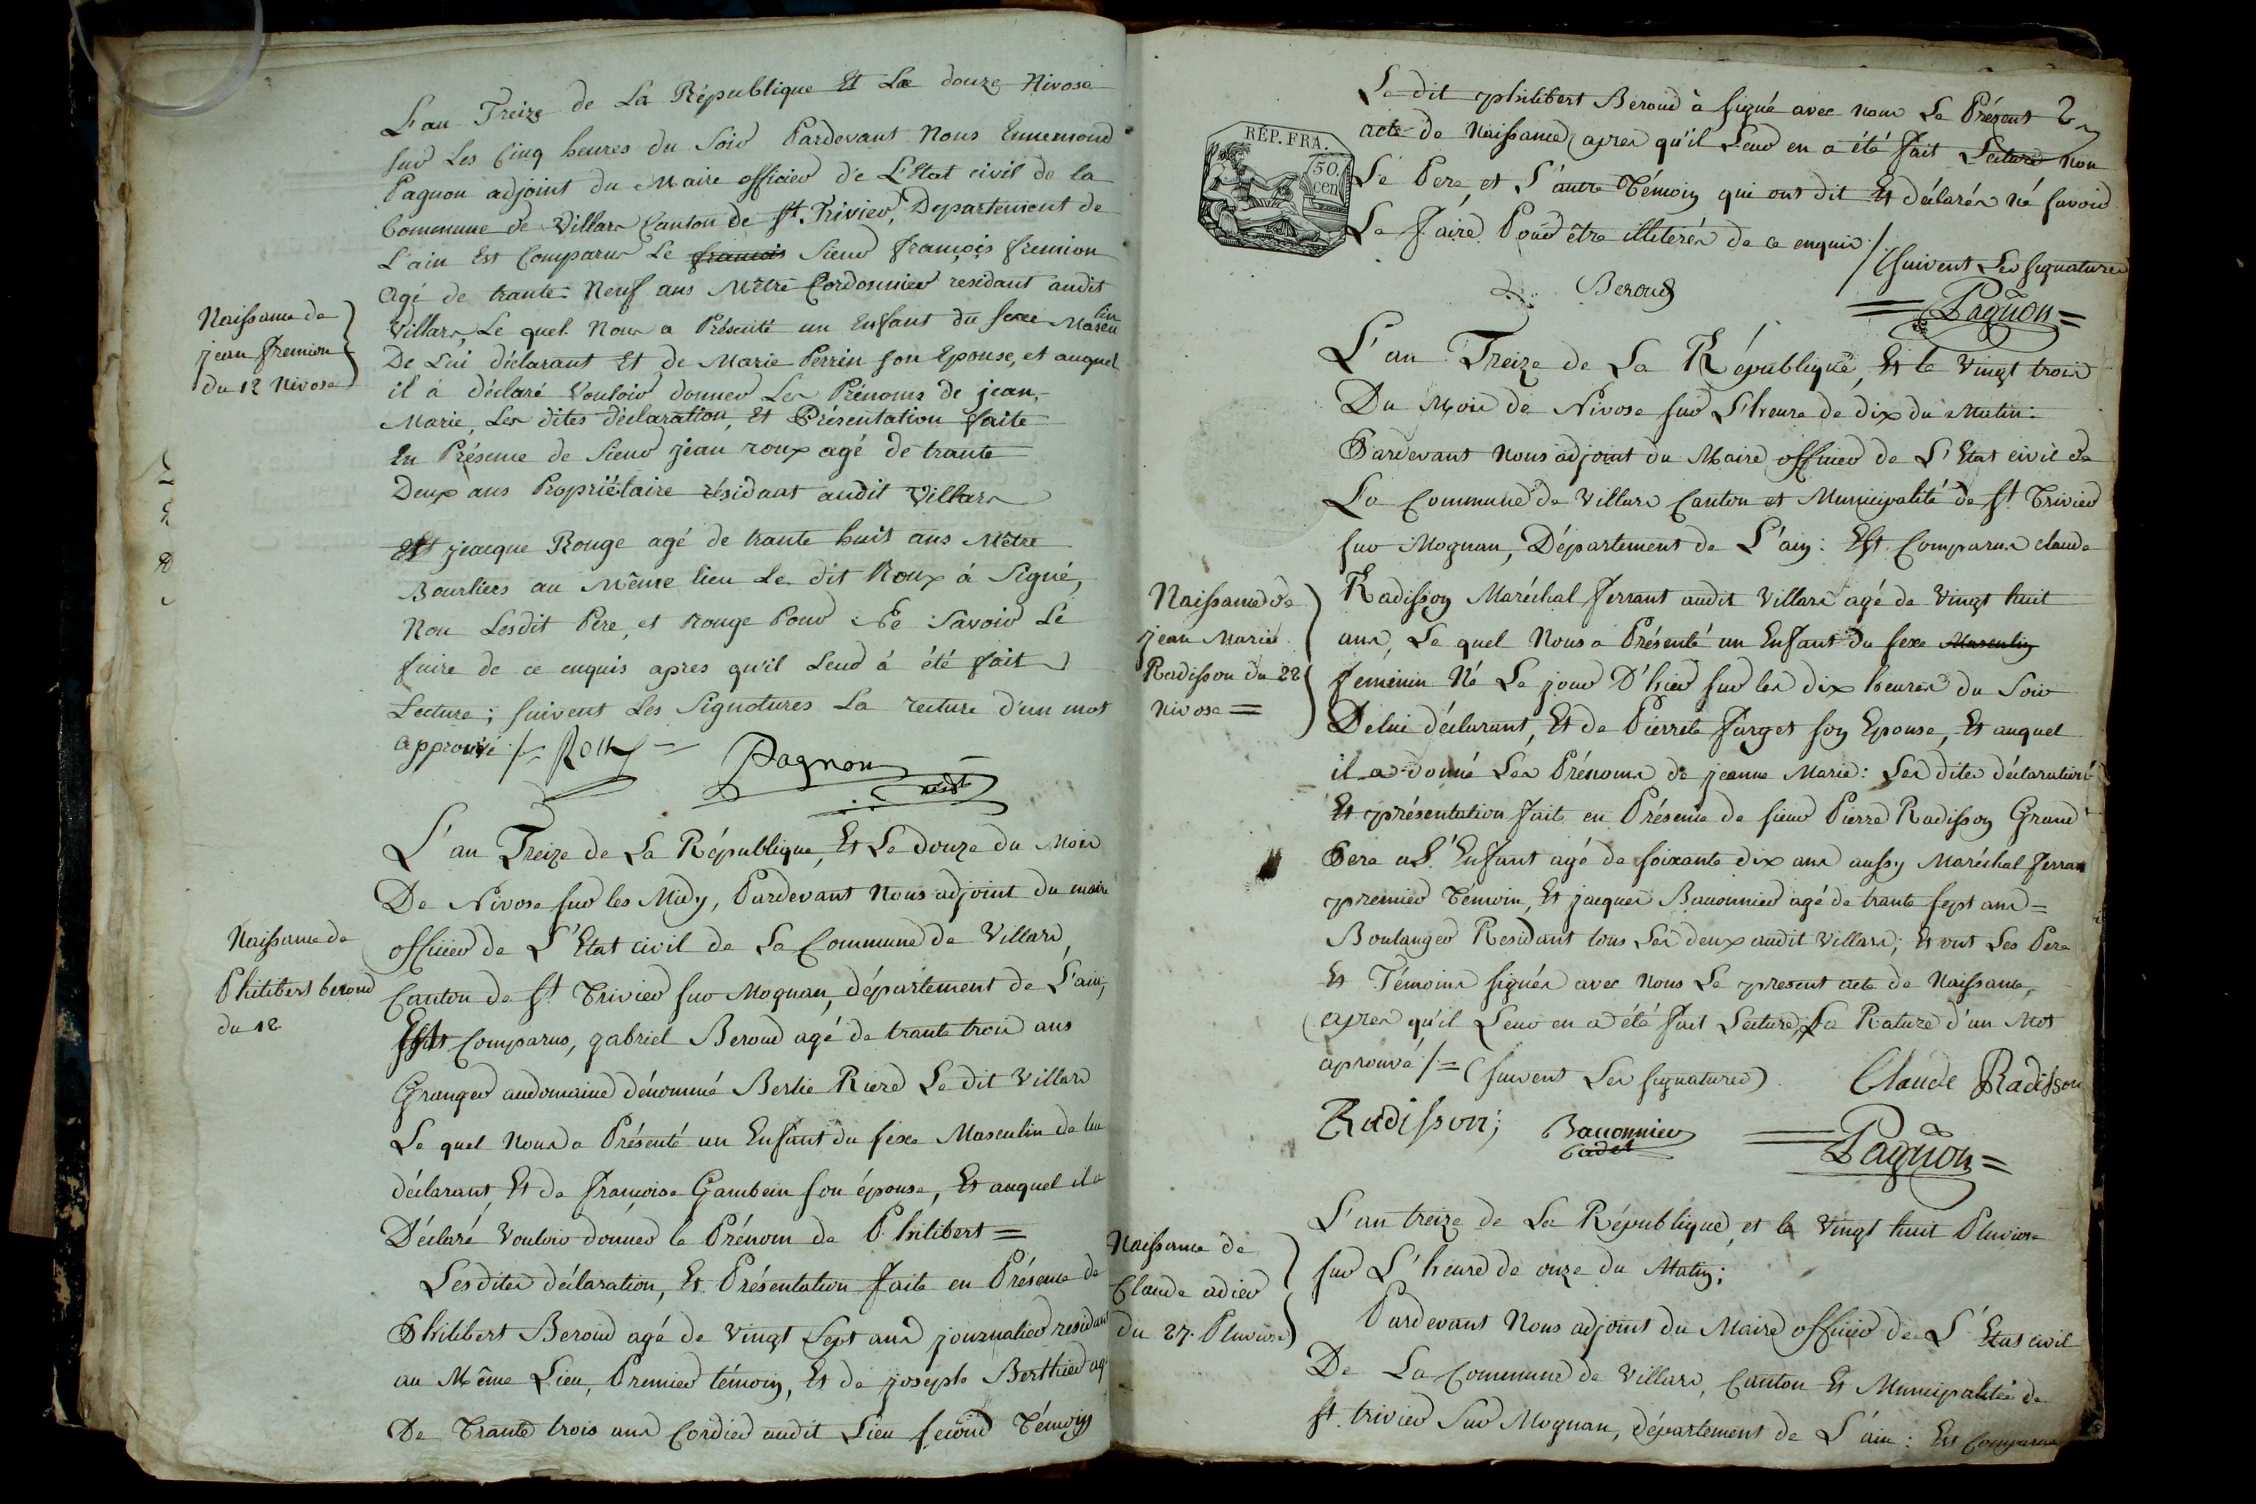 L'an Treize de La République Et Le douze Nivose
sur Les Cinq heures du Soir Pardevant Nous Ennemond
Pagnon adjoint du Maire officier de L'Etat civil de la
Commune de Villars Canton de St. Trivier, Departement de
L'ain Est Comparus Le francois Sieur françois fremion
Agé de trante Neuf ans Mêtre Cordonnier residant audit
Villars, Le quel Nous a Présenté un Enfant du sexe Mascu
lin
Naissance de
jean fremion
du 12 Nivose
De Lui déclarant Et de Marie Perrin son Epouse, et auquel
il à déclaré Vouloir donner Les Prénoms de jean,
Marie, Les dites déclaration, Et Présentation faite
En Présence de Sieur jean roux agé de trante
Deux ans Propriétaire résidant audit Villars
Et jacque Rouge agé de trante huit ans Mêtre
Bourliers au Même lieu Le dit Roux à Signé,
Non Lesdit Pere, et Rouge Pour Ne Savoir Le
faire de ce enquis apres qu'il Leur à été fait
Lecture; suivent Les Signatures La rature d'un mot
approuvé /= Roux = Pagnon
adjt
L'an Treize de La République, Et Le douze du Mois
De Nivose sur les Midy, Pardevant Nous adjoint du maire
officier de L'Etat civil de La Commune de Villars,
Canton de St Trivier sur Mognan, département de L'ain,
Naissance de
Philibert beroud
du 12
Est Comparus, gabriel Beroud agé de trante trois ans
Granger audomaine dénommé Berlie Riere Le dit Villars
Le quel Nous a Présenté un Enfant du sexe Masculin de lui
déclarant, Et de françoise Gambein son épouse, Et auquel il a
Déclaré Vouloir donner le Prénom de Philibert =
Lesdites déclaration, Et Présentation faite en Présence de
Philibert Beroud agé de Vingt Sept ans journalier residant
au Même Lieu, Premier témoin, Et de joseph Berthier agé
De Trante trois ans Cordier audit Lieu second Témoin
Le dit philibert Beroud à signé avec nous Le Présent
acte de Naissance, apres qu'il Leur en a été fait Lecture non
Le Pere, et L'autre Témoin qui ont dit Et déclarés né savoir
Le faire Pour être illiterés de ce enquis /
(suivent Les Signatures
RÉP. FRA.
50.
cen
Beroud
Pagnon =
L'an Treize de La République, Et le Vingt trois
Du Mois de Nivose sur L'heure de dix du Matin:
Pardevant Nous adjoint du Maire officier de L'Etat civil de
La Commune de Villars Canton et Municipalité de St Trivier
sur Mognan, Département de L'ain: Est Comparus claude
Radisson Maréchal ferrant audit Villars agé de Vingt huit
ans, Le quel Nous a Présenté un Enfant du sexe Masculin
feminin Né Le jour D'hier sur les dix heures du Soir
Naissance de
jean Marie
Radisson du 22
nivose =
De lui déclarant, Et de Pierrete farget son Epouse, Et auquel
il a donné Les Prénoms de jeanne Marie: Les dites déclaration
Et présentation fait en Présence de sieur Pierre Radisson Grand
Pere a L'Enfant agé de soixante dix ans aussy Maréchal ferran
premier Témoin, Et jacques Bauonnier agé de trante sept ans =
Boulanger Residant tous Les deux audit Villars; Et ont Les Pere
Et Témoins signés avec Nous Le present acte de Naissance,
(apres qu'il Leur en a été fait Lecture, La Rature d'un Mot
aprouvé /= (suivent Les signatures) Claude Radisson
Radisson; Bauonnier
Cadet
Pagnon =
L'an treize de La République, et le Vingt huit Pluviose
sur L'heure de onze du Matin;
Naissance de
Claude adier
du 27. Pluviose
Pardevant Nous adjoint du Maire officier de L'Etat civil
De La Commune de Villars, Canton Et Municipalité de
St. trivier Sur Mognan, département de L'ain: Est Comparus